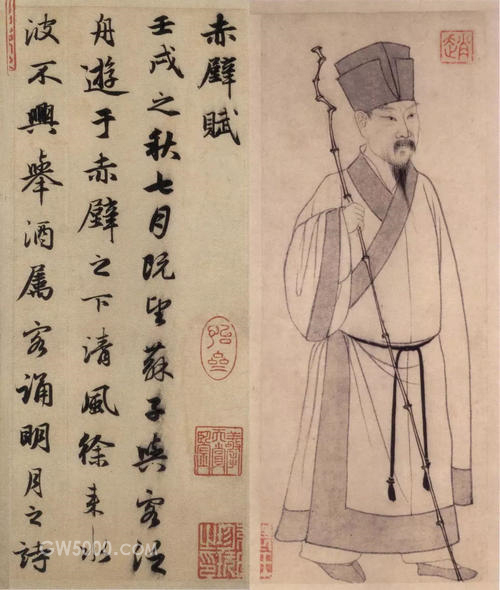 赤壁賦
壬戌之秋七月既望蘇子與客泛
舟遊于赤壁之下清風徐来水
波不興舉酒属客誦明月之詩
趙